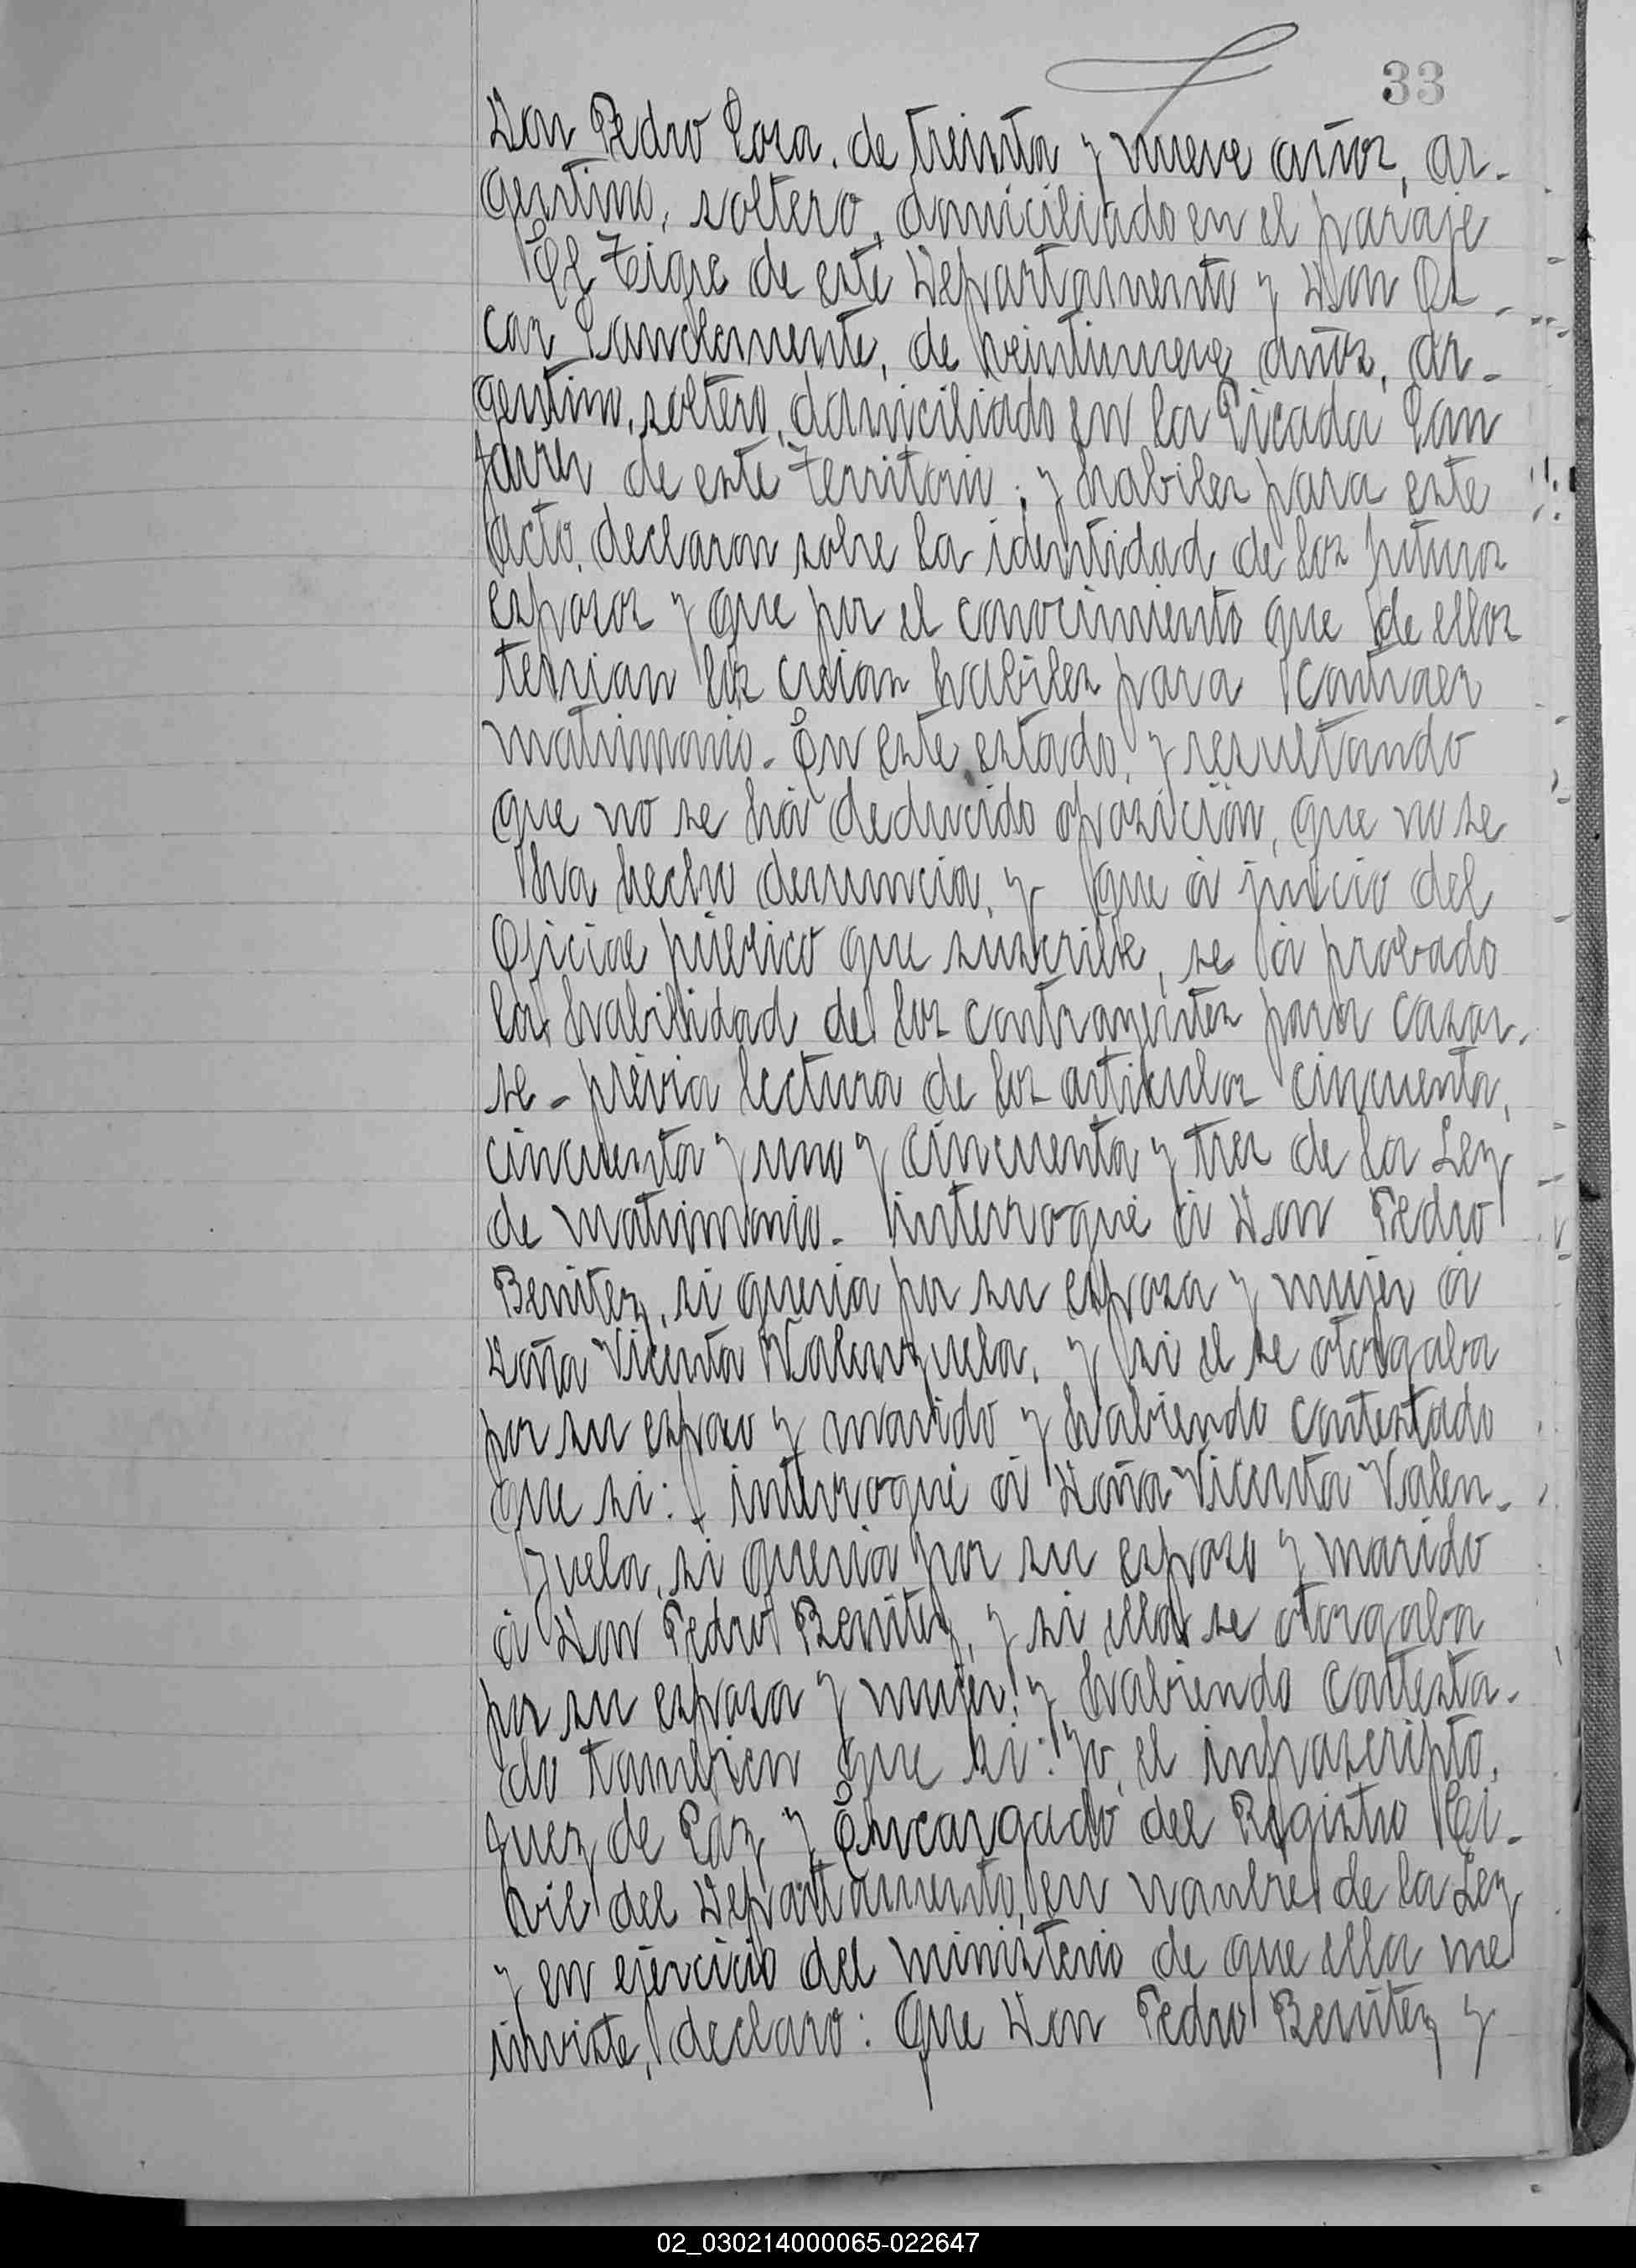 33
Don Pedro Sosa, de treinta y nueve años, ar-
gentino, soltero, domiciliado en el paraje
El Tigre de este Departamento y Don Os-
car Sanclemente, de veintinueve años, ar-
gentino, soltero, domiciliado en la Picada San
Javier de este Territorio; y habiles para este
acto, declaron sobre la identidad de los futuros
esposos y que por el conocimiento que de ellos
tenian los creian habiles para contraer
matrimonio. En este estado, y resultando
que no se há deducido oposición, que no se
ha hecho denuncia, y que á juicio del
Oficial público que suscribe, se á probado
la habilidad de los contrayentes para casar-
se - prévia lectura de los artikulos cincuenta,
cincuenta y uno y cincuenta y tres de la Ley
de matrimonio. interrogué á Don Pedro
Benitez, si queria por su esposa y mujer á
Doña Vicenta Valenzuela, y si el se otorgaba
por su esposo y marido y habiendo contestado
que si: interrogué á Doña Vicenta Valen-
zuela, si queria por su esposo y marido
á Don Pedro Benitez, y si ella se otorgaba
por su esposa y mujer y habiendo contesta-
do tambien que si: Yo, el infrascripto,
Juez de Paz y Encargado del Registro Ci-
vil del Departamento, en nombre de la Ley
y en ejercicio del ministerio de que ella me
inviste, declaro: Que Don Pedro Benitez y
02_030214000065-022647